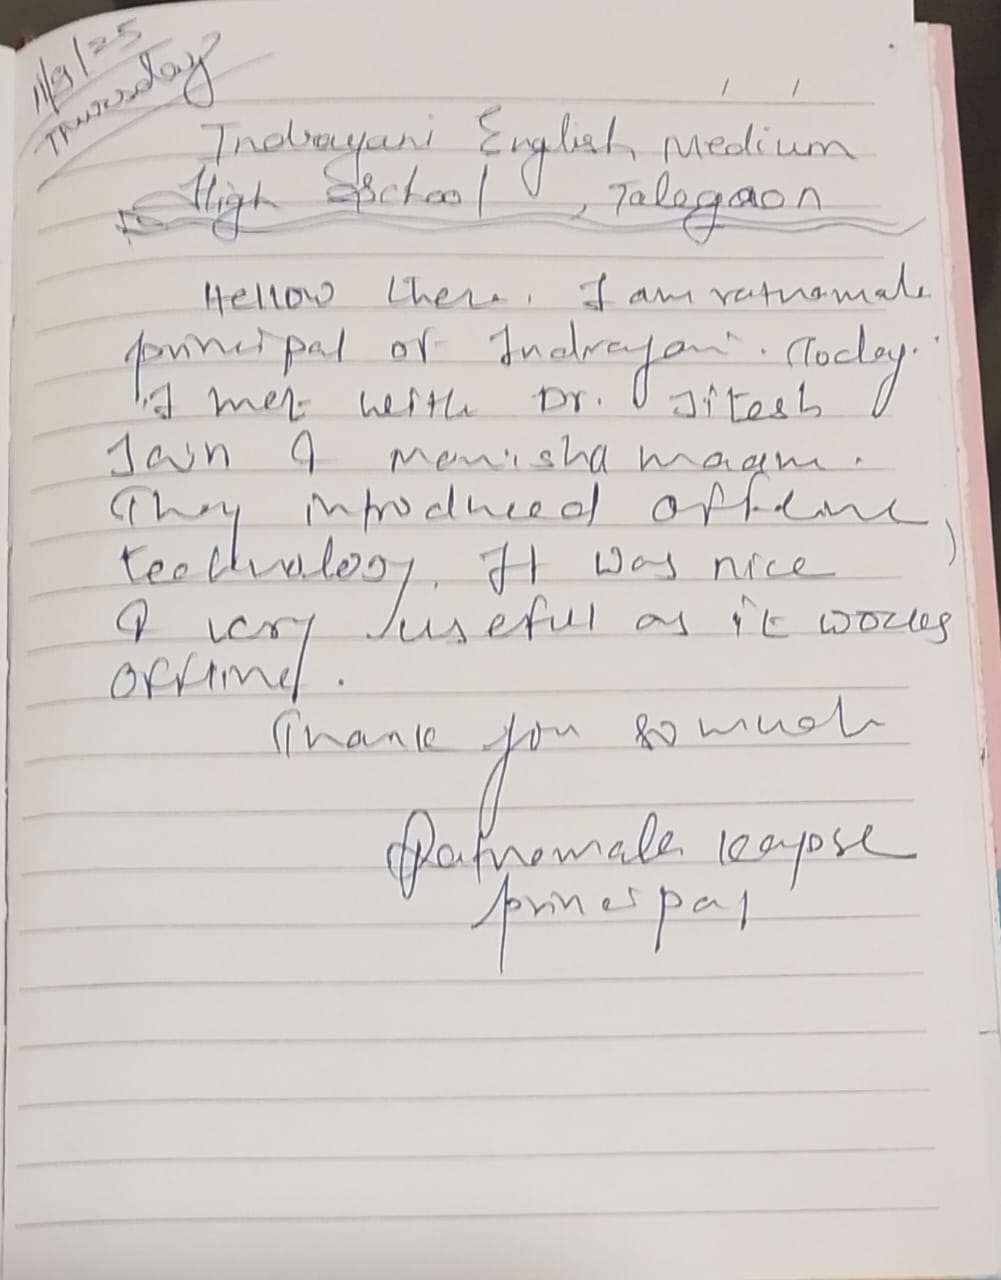 11/9/25
Thursday
Indrayani English Medium
High School, Talegaon
Hellow there. I am ratnamala
principal of Indrayani. Today.
I met with Dr. Jitesh
Jain & Manisha maam.
They introduced offline
technology. It was nice
& very useful as it works
offline.
Thank you so much
Ratnamala Kapse
prinespal